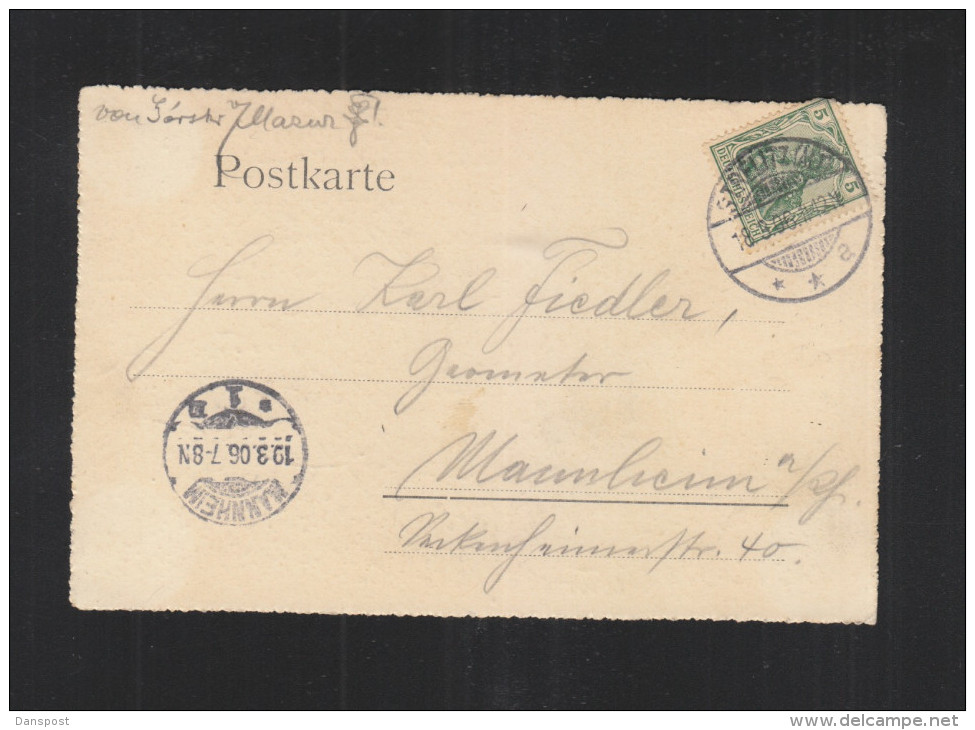 von Förster Mazur
Postkarte
5
5
DEUTSCHES REICH
Herrn Karl Fiedler,
Geometer
Mannheim a/Rh.
Seckenheimerstr. 40.
MANNHEIM
12.3.06.7-8N
1
Danspost
www.delcampe.net